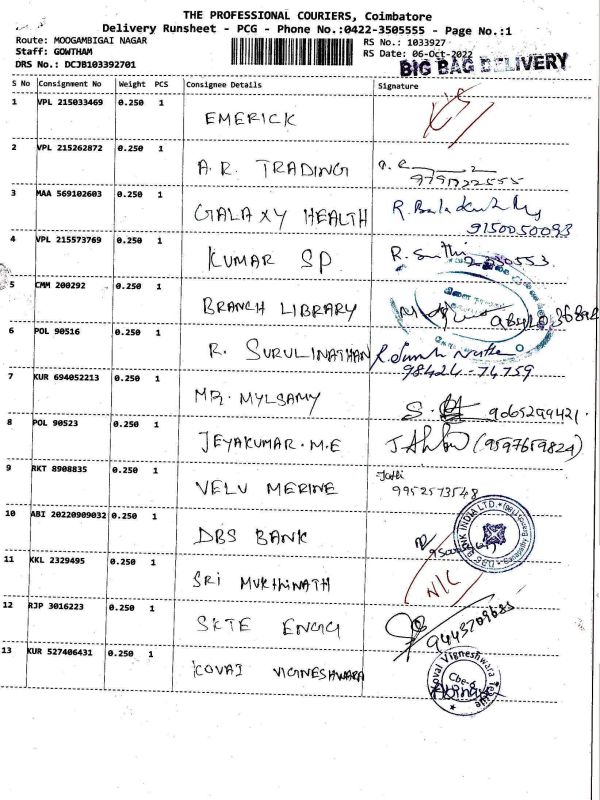 THE PROFESSIONAL COURIERS, Coimbatore
Delivery Runsheet - PCG - Phone No.:0422-3505555 - Page No.:1
Route: MOOGAMBIGAI NAGAR RS No.: 1033927
Staff: GOWTHAM RS Date: 06-Oct-2022
DRS No.: DCJB103392701 BIG BAG DELIVERY
S No Consignment No Weight PCS Consignee Details Signature
1 VPL 215033469 0.250 1 EMERICK
2 VPL 215262872 0.250 1 A.R. TRADING
3 MAA 569102603 0.250 1 GALAXY HEALTH
9150050093
4 VPL 215573769 0.250 1 KUMAR SP
5 CMM 200292 0.250 1 BRANCH LIBRARY
6 POL 90516 0.250 1 R. SURULINATHAN
98424-74759
7 KUR 694052213 0.250 1 MR. MYLSAMY 9065299421
8 POL 90523 0.250 1 JEYAKUMAR.M.E (9597659824)
9 RKT 8908835 0.250 1 VELU MERINE
9952573548
10 ABI 20220909032 0.250 1 DBS BANK DBS BANK INDIA LTD.
11 KKL 2329495 0.250 1 SRI MUKTHINATH N/C
12 RJP 3016223 0.250 1 SKTE ENGG
13 KUR 527406431 0.250 1 KOVAI VIGINESHWARA Kovai Vigneshwara Textile
Cbe-6